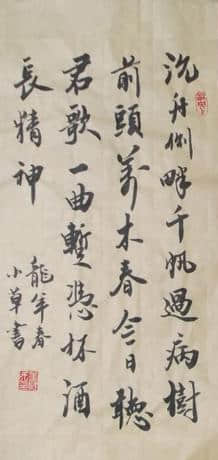 沉舟側畔千帆過病樹
前頭萬木春今日聽
君歌一曲暫憑杯酒
長精神
龍年春
小草書